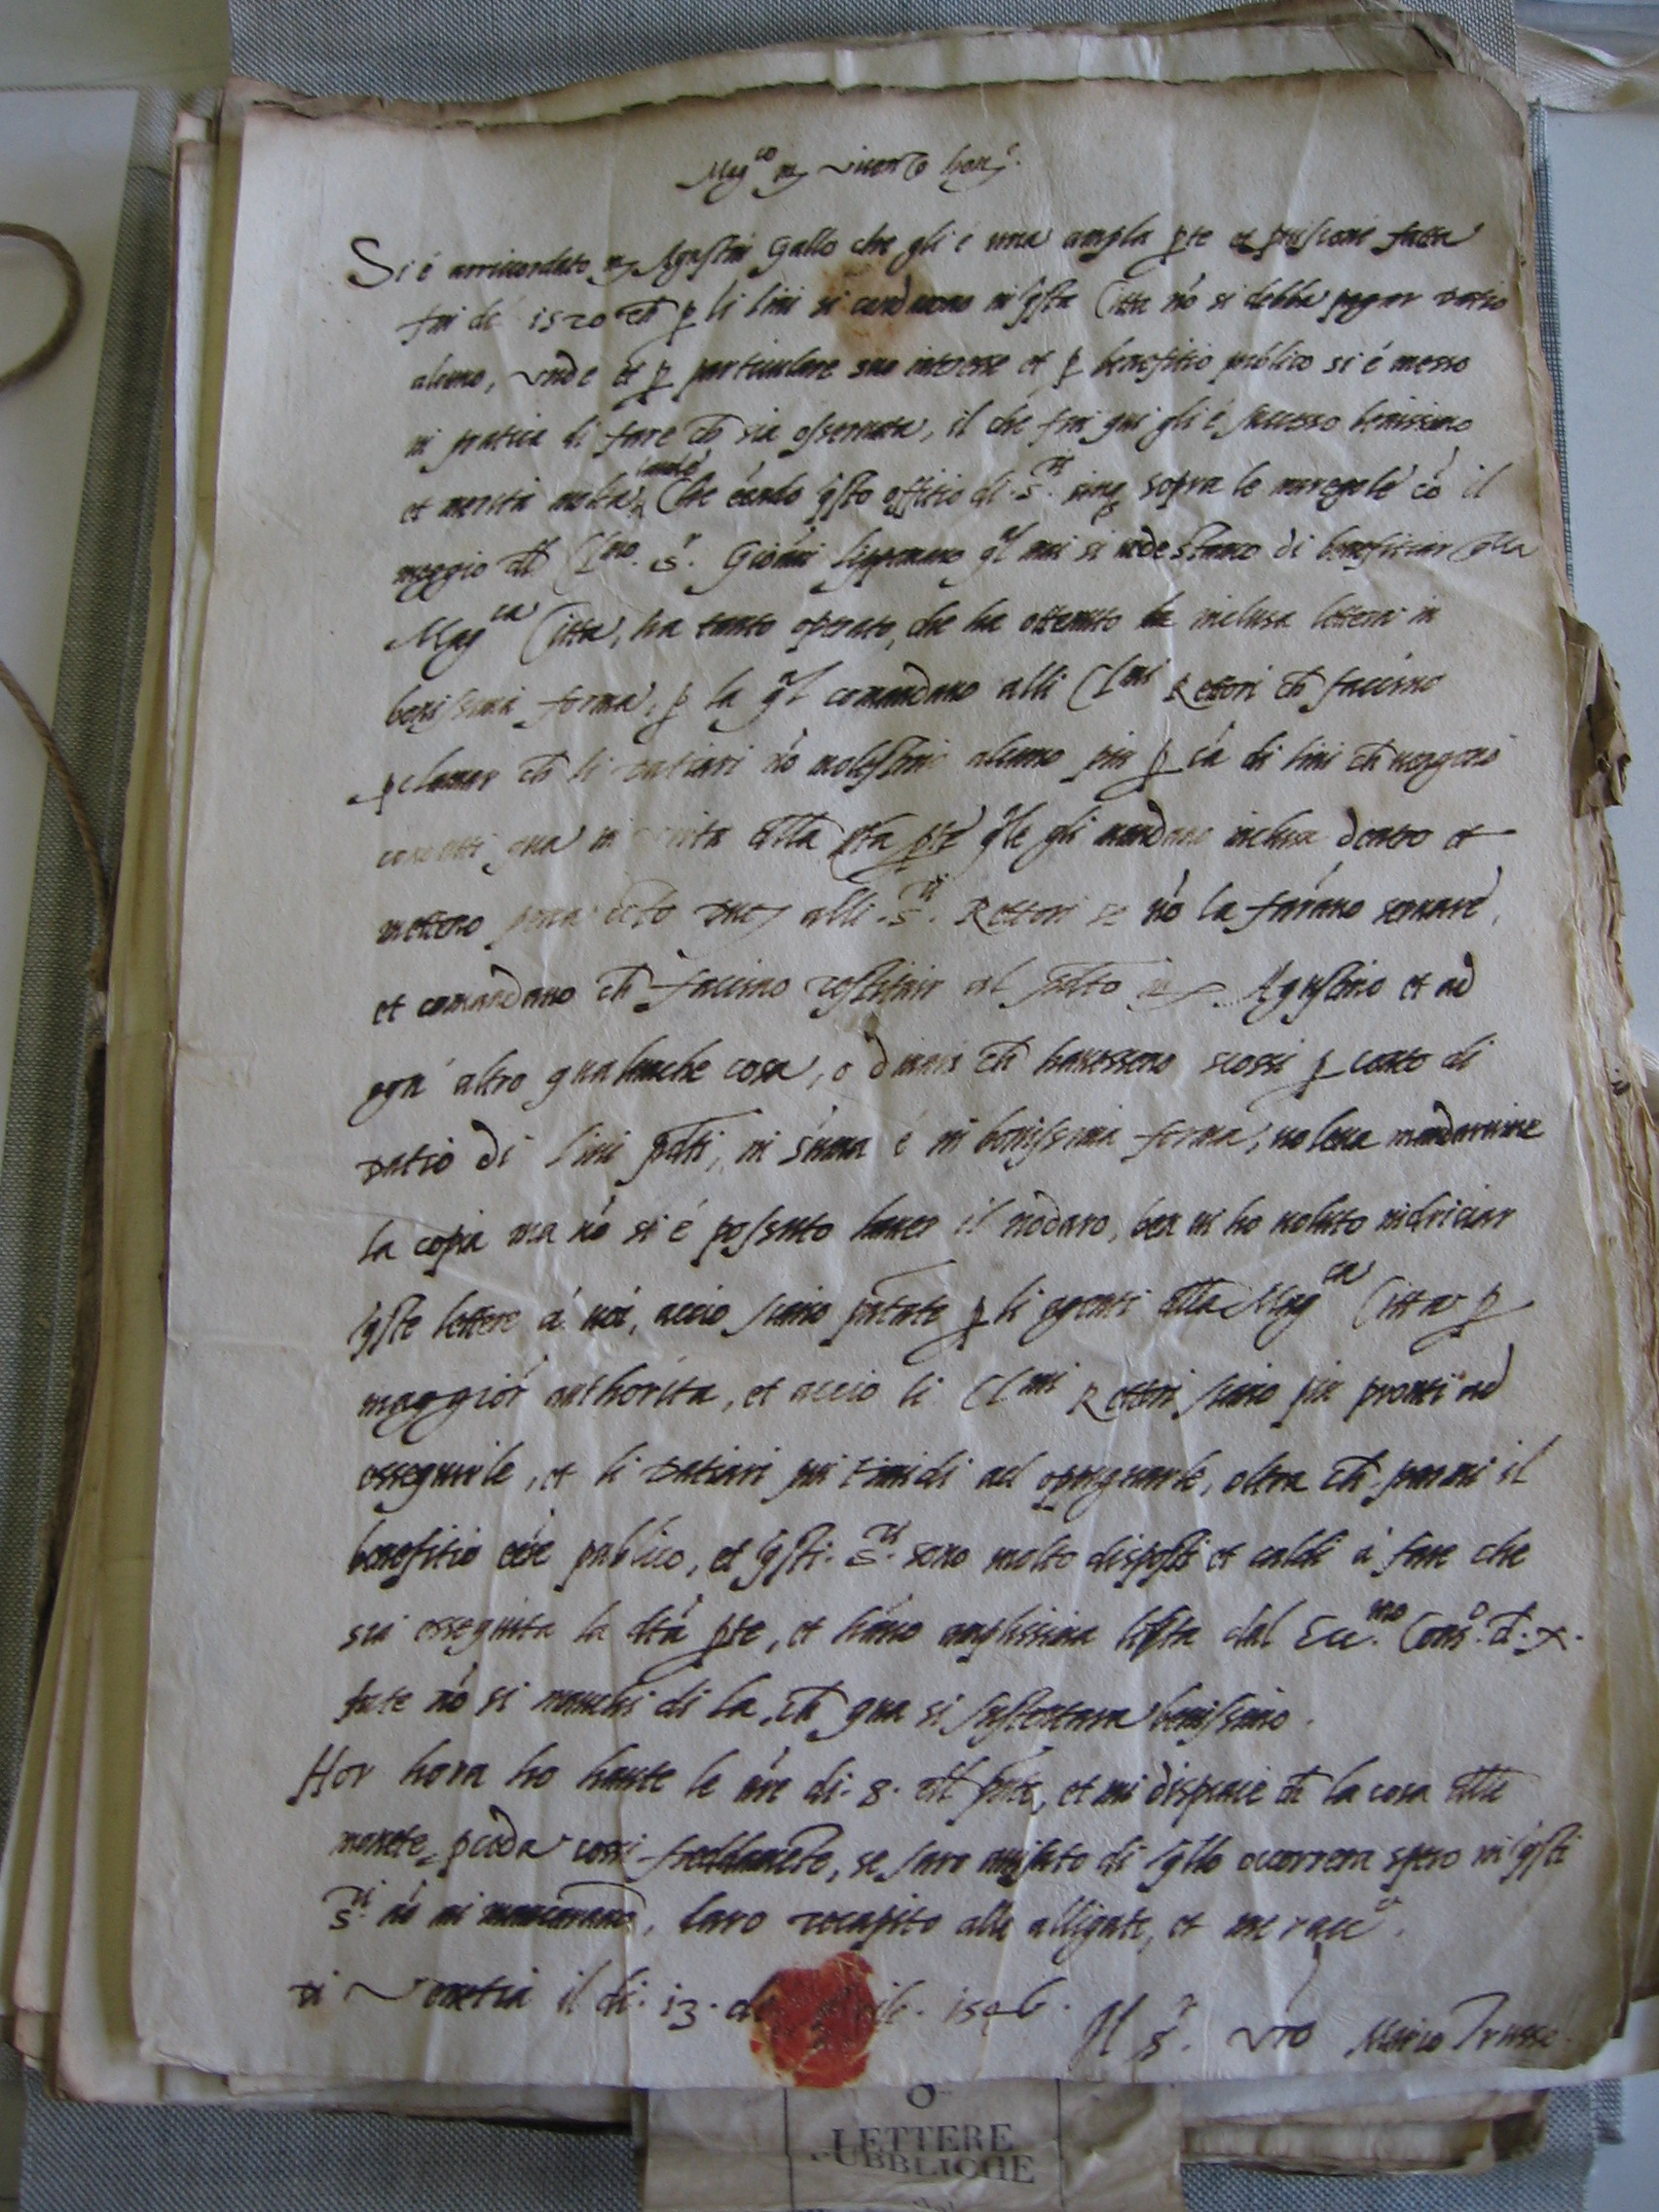 Mag.co m. vicario hon.
Si é arricordato m. Agustin Gallo che gli é una ampla pte et prisione fatta
fin dél 1520 ch p li lini si conducono in qsta Citta nó si debba pagar datio
alcuno, unde et p particulare suo interesse et p benefitio publico si é messo
in pratica di fare ch sia osservata, il che fin qui gli é successo benissimo
et merita molta laude Che eéndo qsto offitio di S.ri sopra le mareqole có il
meggio dl Cl.mo S.r Gioáni qł mi si vede di benefitiar qlla
Mag.ca Citta, ha tanto operato, che ha ottenuto la inclusa lettera in
bonissima forma, p la qł comandano alli Cl.mi Rettori ch faccino
pclamar ch li datiari nó molestino alcuno piu p cá di lini ch vengono
condutti qua in virtu dlla pta pte qle gli mandano inclusa dentro et
mettono pena alli S.ri Rettori se nó la faráno servare,
et comandano ch faccino restituir al pdto m. Agustino et ad
ogn' altro qualunche cosa, o dinari ch havesseno scossi p conto di
datio di lini pdti, in súma é in bonissima forma, voleva mandarvine
la copia ma nó si é possuto haver il nodaro, ben vi ho voluto indriciar
qste lettere á voi, accio siano pntate p li agenti dlla Mag.ca Citta p
maggiór authorita, et accio li Cl.mi Rettori siano piu pronti ad
esseguirle, et li datiari piu timidi ad oppugnarle, oltra ch parmi il
benefitio eér publico, et qsti S.ri sono molto disposti et caldi á fare che
sia esseguita la dtá pte, et háno amplissima libta dal Ecc.mo Cons.o d. x.
fate nó si manchi di la, ch qua si sustentara benissimo.
Hor hora ho havute le vre di. 8. dl pnte, et mi dispiace ch la cosa dlle
monete pceda cossi freddaméte, se saro avisato di qllo occorrera spero in qsti
S.ri nó mi mancarano, daro recapito alle alligate, et me racc.o
Di Venetia il di. 13. ile. 1546.
Il S.r Vro Marco Trusse
O
LETTERE
PUBBLICHE